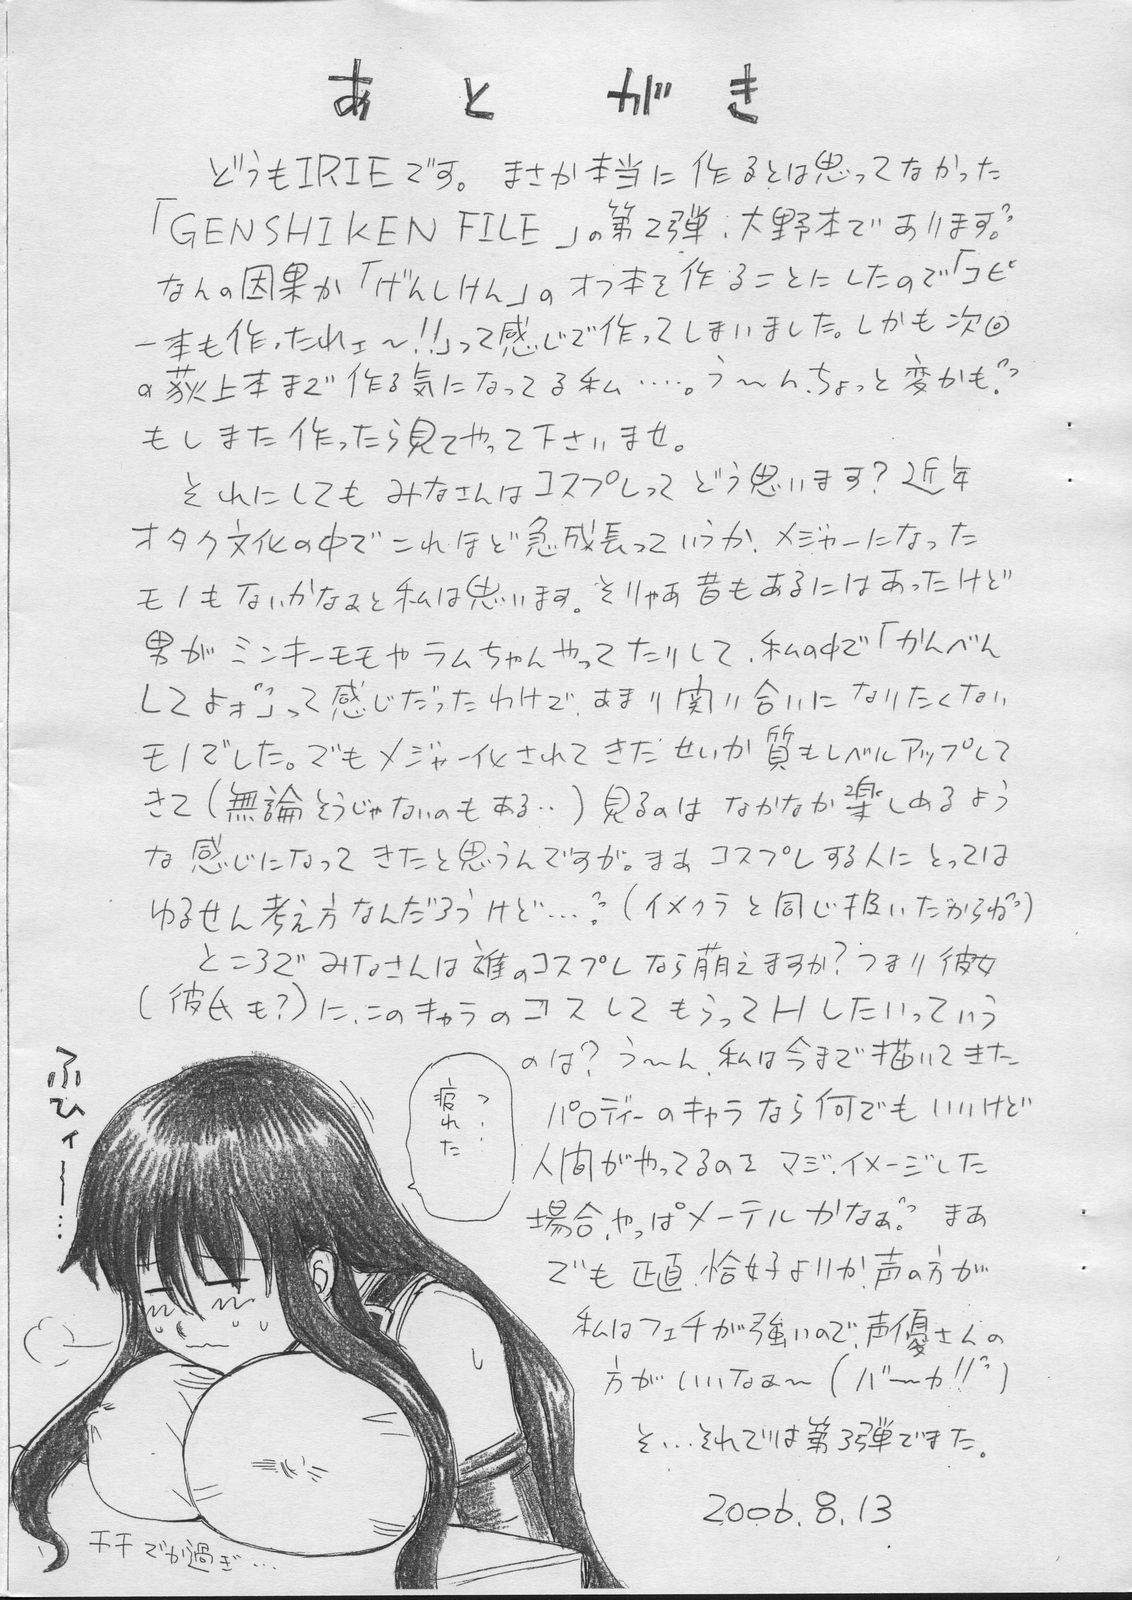 あとがき
どうもIRIEです。まさか本当に作るとは思ってなかった
「GENSHIKEN FILE」の第2弾、大野本であります。
なんの因果か「げんしけん」のオフ本を作ることにしたので「コピ
ー本も作ったれェ〜!!」って感じで作ってしまいました。しかも次回
の荻上本まで作る気になってる私……。う〜ん、ちょっと変かも。
もしまた作ったら見てやって下さいませ。
それにしてもみなさんはコスプレってどう思います？近年
オタク文化の中でこれほど急成長っていうか、メジャーになった
モノもないかなぁと私は思います。そりゃあ昔もあるにはあったけど
男がミンキーモモやラムちゃんやってたりして、私の中で「かんべん
してよォ」って感じだったわけで、あまり関り合いになりたくない
モノでした。でもメジャー化されてきたせいか質もレベルアップして
きて(無論そうじゃないのもある‥)見るのはなかなか楽しめるよう
な感じになってきたと思うんですが。まぁコスプレする人にとっては
ゆるせん考え方なんだろうけど…。(イメクラと同じ扱いだからね)
ところでみなさんは誰のコスプレなら萌えますか？つまり彼女
(彼氏も？)に、このキャラのコスしてもらってHしたいっていう
のは？う〜ん、私は今まで描いてきた
パロディーのキャラなら何でもいいけど
人間がやってるのをマジ、イメージした
場合、やっぱメーテルかなぁ。まぁ
でも正直、恰好よりか声の方が
私はフェチが強いので、声優さんの
方がいいなぁ〜(バーカ!!)
そ…それでは第3弾でまた。
2006.8.13
ふひィー…
つ…
疲れた
チチでか過ぎ…